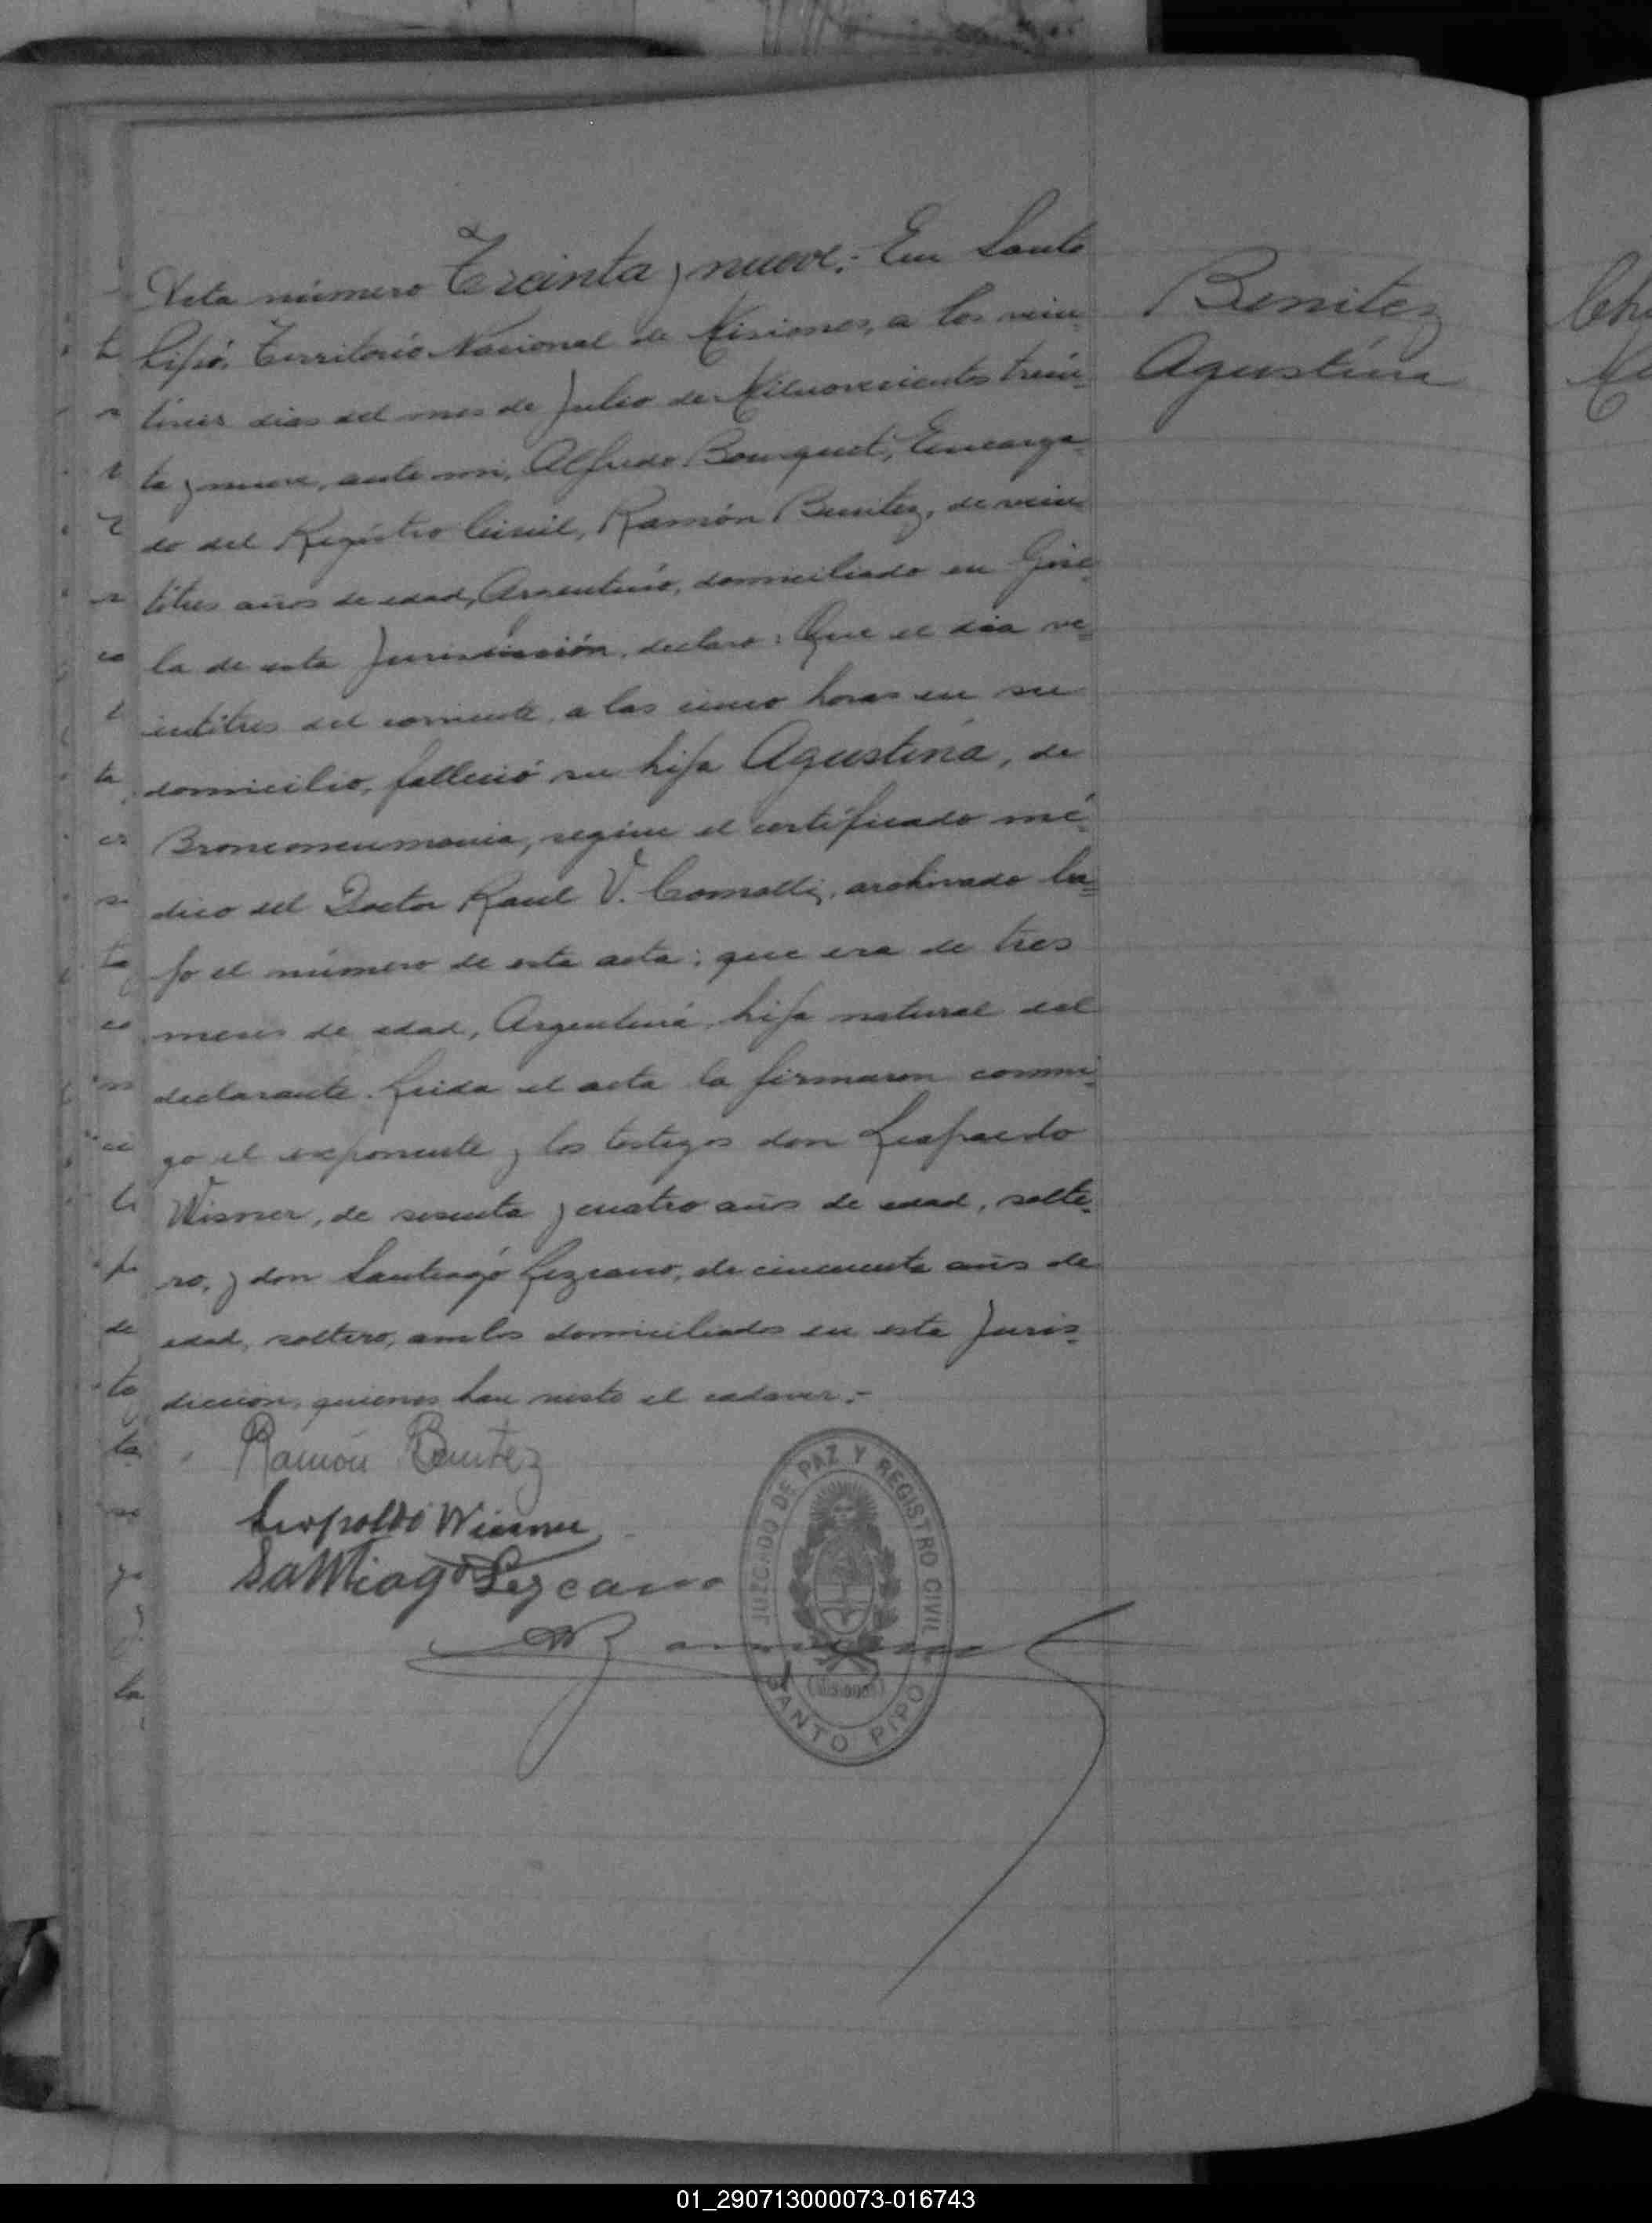 Acta número Treinta y nueve.- En Santo
Pipó, Territorio Nacional de Misiones, a los vein=
tiseis dias del mes de Julio de Milnovecientos trein=
ta y nueve, ante mi, Alfredo Bourquet, Encarga=
do del Registro Civil, Ramón Benitez, de vein=
titres años de edad, Argentino, domiciliado en Gise=
la de esta Jurisdicción, declaro: Que el dia ve=
intitres del corriente, a las cinco horas en su
domicilio, falleció su hija Agustina, de
Bronconeumonia, según el certificado mé=
dico del Doctor Raul V. Comolli, archivado ba=
jo el número de esta acta; que era de tres
meses de edad, Argentina, hija natural del
declarante. Leida el acta la firmaron conmi=
go el exponente y los testigos don Leopoldo
Wismer, de sesenta y cuatro años de edad, solte=
ro, y don Santiago Lezcano, de cincuenta años de
edad, soltero, ambos domiciliados en esta Juris=
diccion, quienes han visto el cadaver.-
Benitez
Agustina
Ramón Benitez
Leopoldo Wismer
Santiago Lezcano
JUZGADO DE PAZ Y REGISTRO CIVIL
(Misiones)
SANTO PIPO
01_290713000073-016743